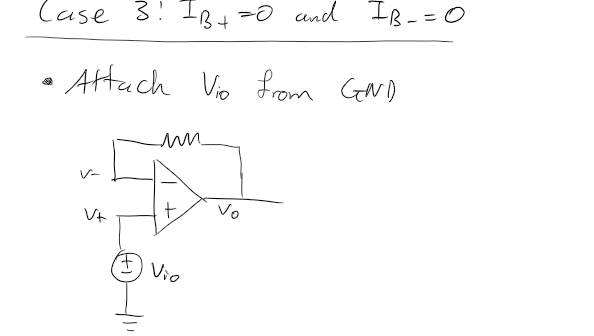 Case 3: IB+ = 0 and IB- = 0
• Attach Vio from GND
V-
V+
-
+
Vo
+
-
Vio